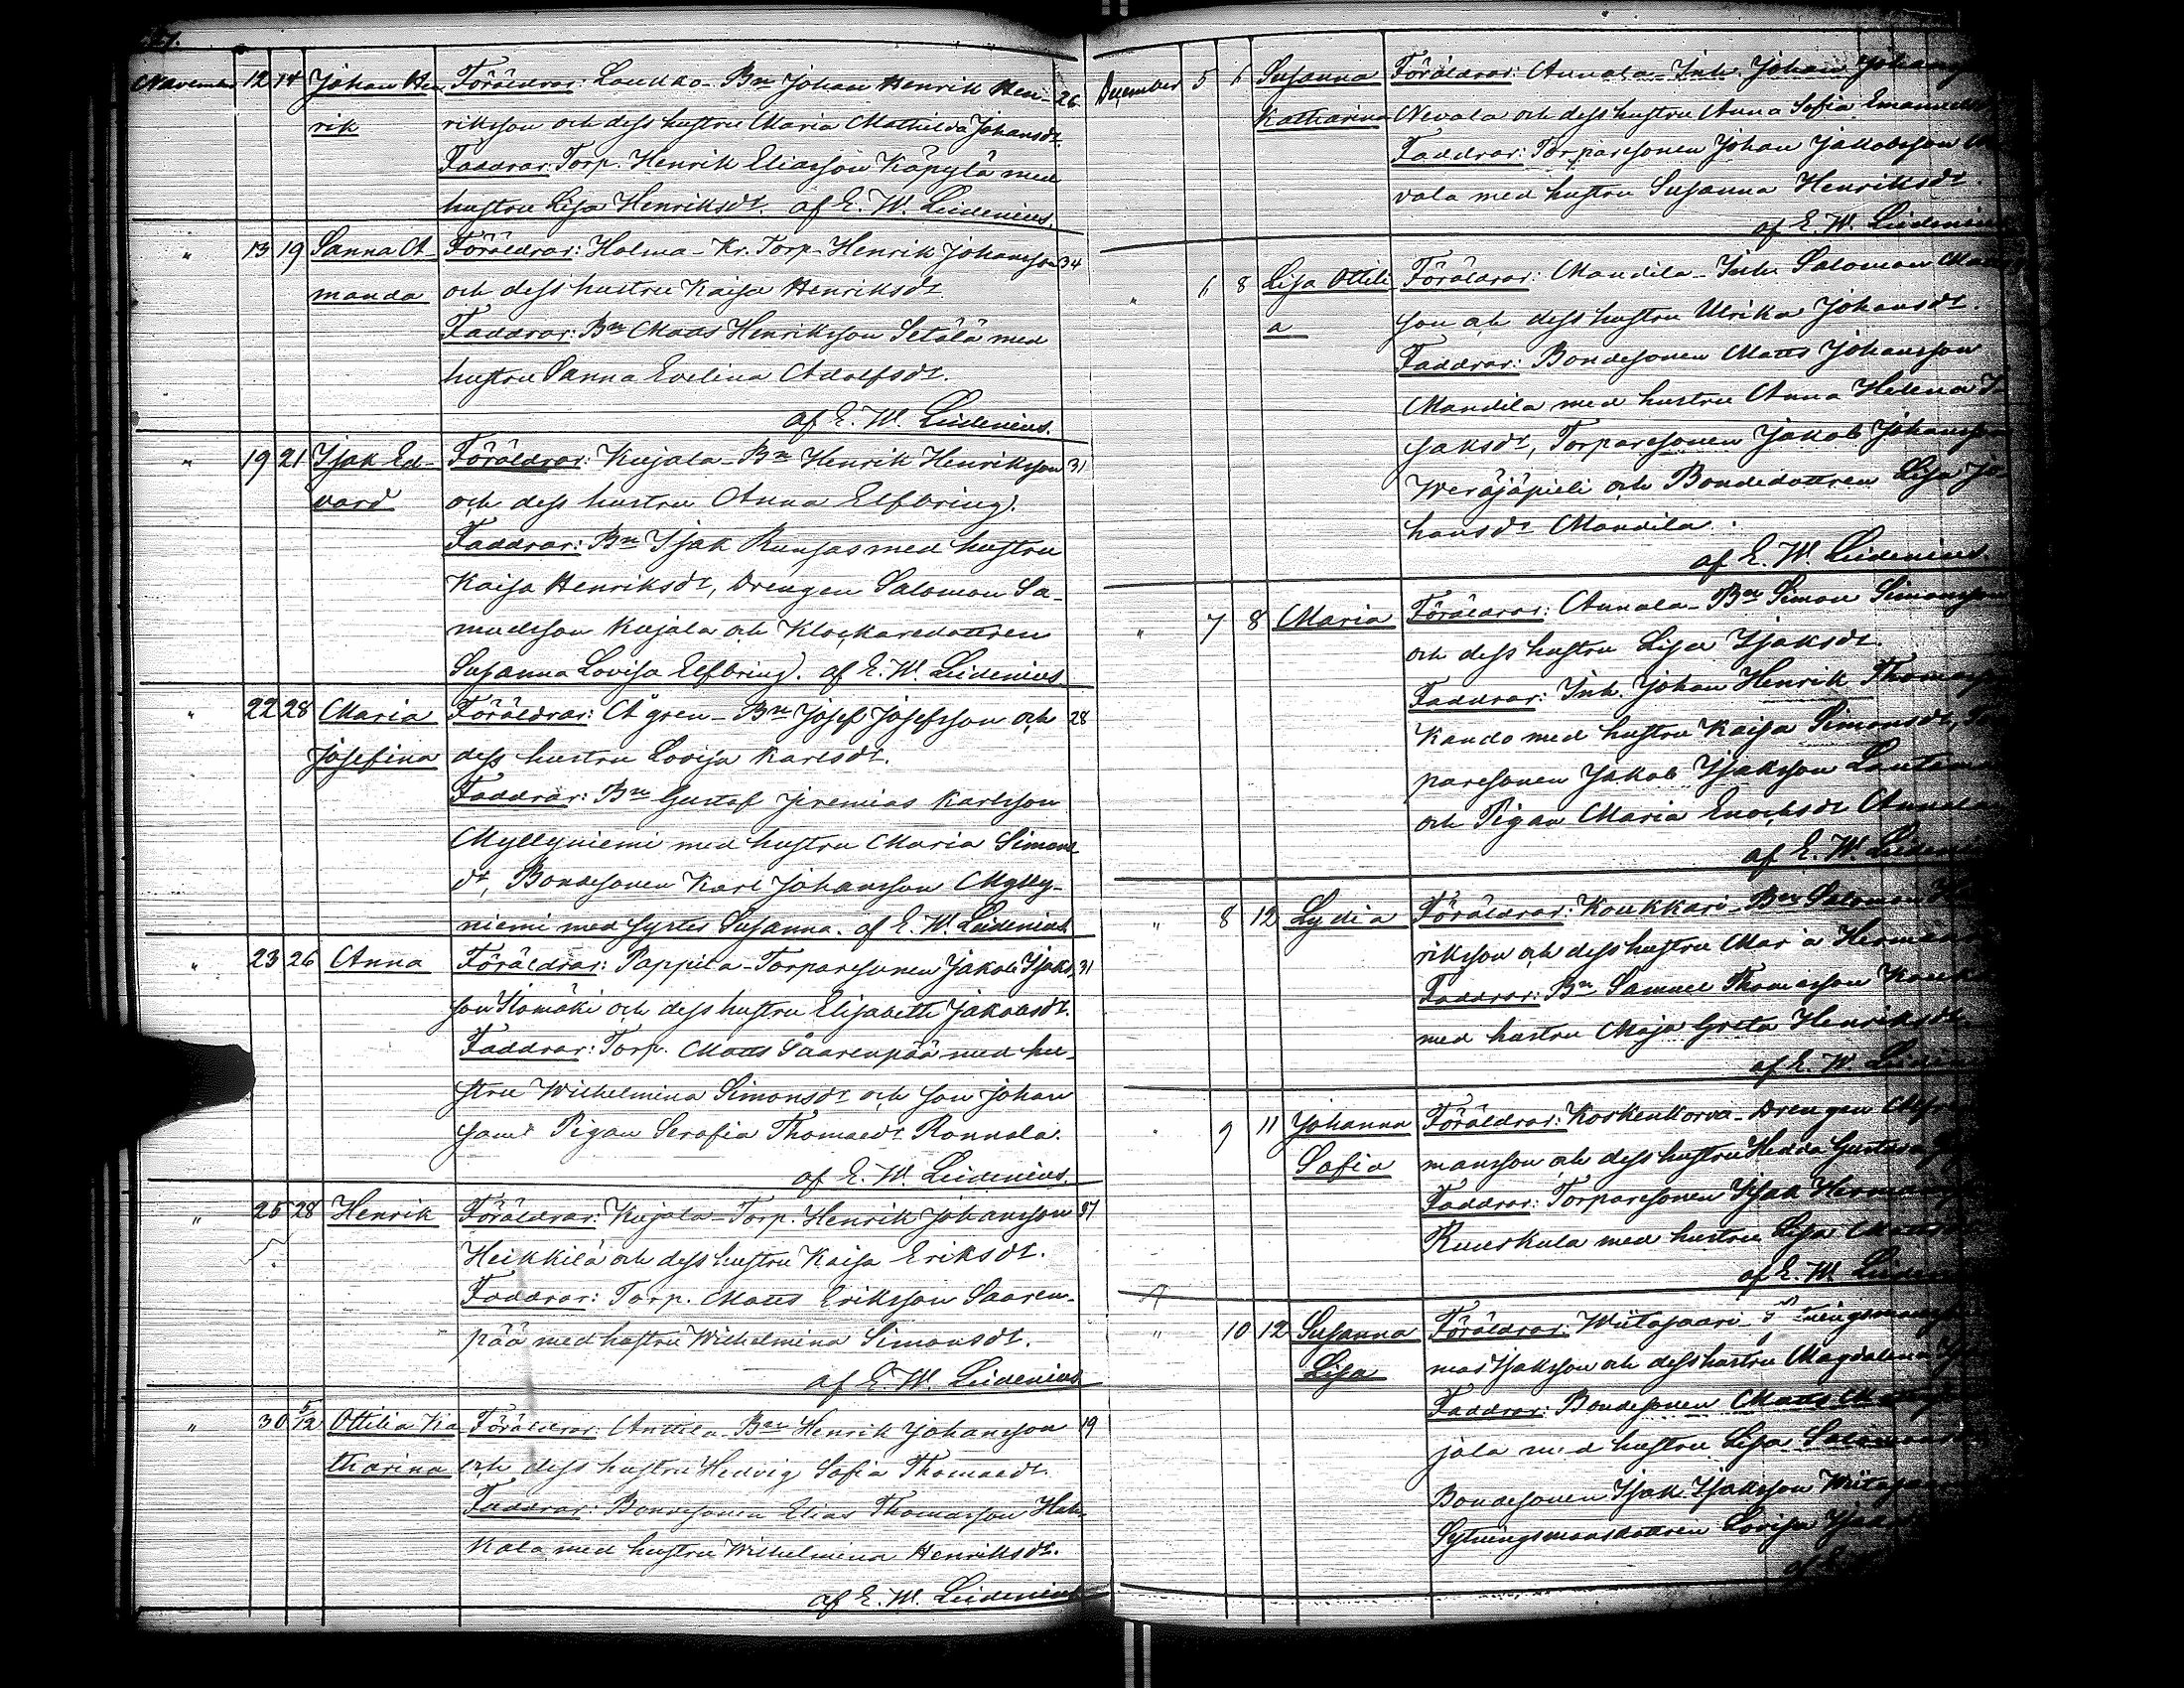 Novembr. 12 14 Johan Hen Föräldrar: Laukko-Bn Johan Henrik Hen- 26
rik riksson och dess hustru Maria Mathilda Johansdr.
Faddrar: Torp. Henrik Eliasson Käpylä med
hustru Lisa Henriksdr. af E. W. Leidenius.
" 13 19 Sanna A- Föräldrar: Holma-Kr. Torp. Henrik Johansson 34
manda och dess hustru Kaisa Henriksdr.
Faddrar: Bn Matts Henriksson Setälä med
hustru Sanna Evelina Adolfsdr.
af E. W. Leidenius.
" 19 21 Isak Ed- Föräldrar: Kujala-Bn Henrik Henriksson 31
vard och dess hustru Anna Elfbring.
Faddrar: Bn Isak Runsas med hustru
Kaisa Henriksdr, Drengen Salomon Sa-
muelsson Kujala och Klockaredottren
Susanna Lovisa Elfbring. af E. W. Leidenius
" 22 28 Maria Föräldrar: Ågren-Bn Josef Josefsson och 28
Josefina dess hustru Lovisa Karlsdr.
Faddrar: Bn Gustaf Jeremias Karlsson
Myllyniemi med hustru Maria Simons
dr, Bondesonen Karl Johansson Mylly-
niemi med syster Susanna. af E. W. Leidenius
" 23 26 Anna Föräldrar: Pappila-Torparesonen Jakob Isaks 31
son Ilomäki och dess hustru Elisabeth Jakobsdr.
Faddrar: Torp. Matts Saarenpää med hu-
stru Wilhelmina Simonsdr och son Johan
samt Pigan Serafia Thomasdr Rannala.
af E. W. Leidenius.
" 25 28 Henrik Föräldrar: Kujala-Torp. Henrik Johansson 37
Heikkilä och dess hustru Kaisa Eriksdr.
Faddrar: Torp. Matts Eriksson Saaren-
pää med hustru Wilhelmina Simonsdr.
af E. W. Leidenius
" 30 5/12 Ottilia Ka Föräldrar: Anttila-Bn Henrik Johansson 19
tharina och dess hustru Hedvig Sofia Thomasdr.
Faddrar: Bondesonen Elias Thomasson
kala med hustru Wilhelmina Henriksdr.
af E. W. Leidenius
December 5 6 Susanna Föräldrar: Annala-Inh. Johan
Katharina Nevala och dess hustru Anna Sofia
Faddrar: Torparesonen Johan Jakobsson
vala med hustru Susanna Henriksdr.
af E. W. Leidenius
" 6 8 Lisa Ottili- Föräldrar: Mandila-Inh. Salomon
a son och dess hustru Ulrika Johansdr.
Faddrar: Bondesonen Matts Johansson
Mandila med hustru Anna Helena I-
saksdr, Torparesonen Jakob Johansson
och Bondedottren Lisa Jo-
hansdr Mandila.
af E. W. Leidenius
" 7 8 Maria Föräldrar: Annala-Bn Simon Simonsson
och dess hustru Lisa Isaksdr
Faddrar: Inh. Johan Henrik
Kando med hustru Kaisa Simonsdr, Tor
paresonen Jakob Isaksson
och Pigan Maria Enochsdr Annala
af E. W.
" 8 12 Lydia Föräldrar: Koukkari-Bn Salomon
riksson och dess hustru Maria
Faddrar: Bn Samuel Thomasson
med hustru Maja Greta Henriksdr
af E. W.
" 9 11 Johanna Föräldrar: Koskenkorva-Drengen
Sofia mansson och dess hustru Hedda Gustava
Faddrar: Torparesonen Isak
Ruuskula med hustru Lisa
af E. W.
" 10 12 Susanna Föräldrar: Wiitasaari-
Lisa Isaksson och dess hustru Magdalena
Faddrar: Bondesonen Matts
jala med hustru Lisa
Bondesonen Isak Isaksson
Sytningsmansdottren Lovisa